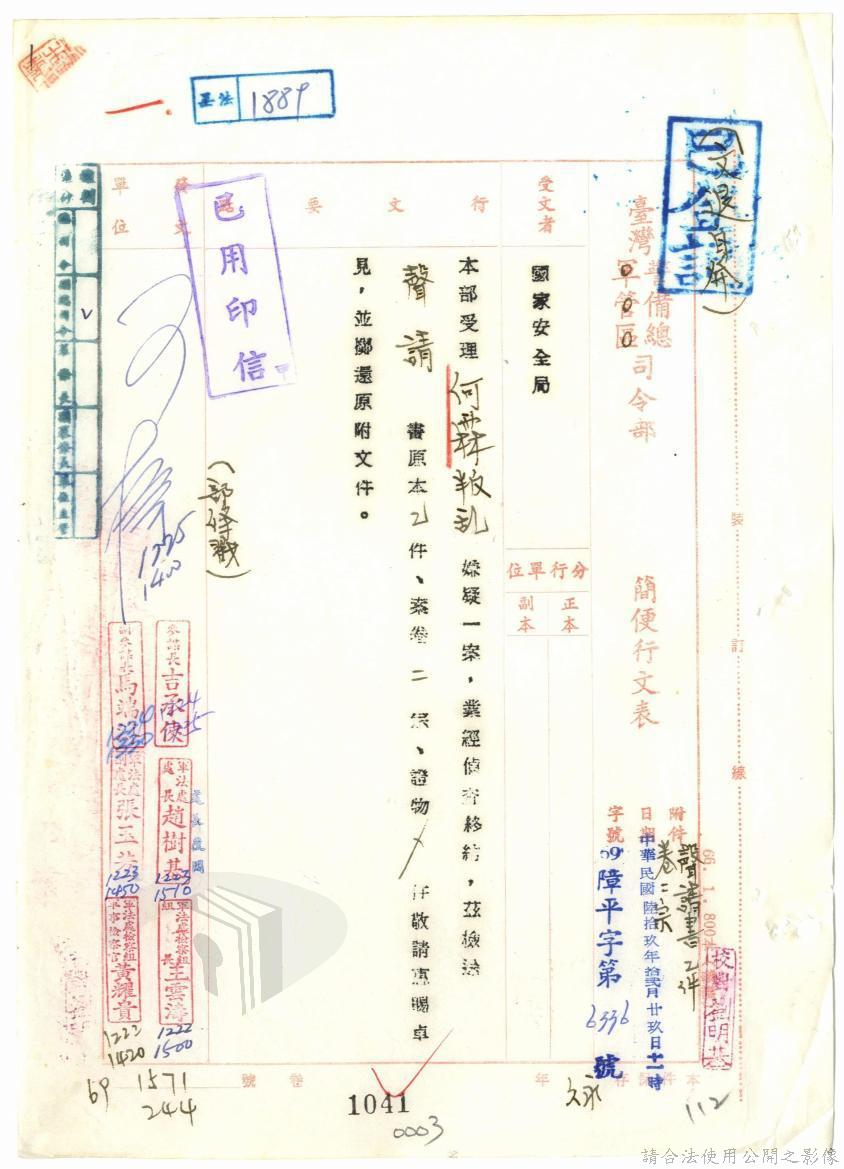 法 1889
(文退自存)
臺灣警備總司令部
軍管區
簡便行文表
附件
聲請書乙件
卷二宗
日期
中華民國陸拾玖年拾貳月廿玖日十一時
字號
69障平字第6336號
受文者
國家安全局
分行單位
正本
副本
行文要
本部受理何霖叛乱嫌疑一案，業經偵查移
聲請書原本乙件、案卷二宗、證物 件敬請惠賜卓
見，並擲還原附文件。
(部條戳)
發文單位
已用印信
1225
1400
參謀長吉承
1224
副參謀長馬
軍法處處長趙樹基
1223
1510
軍法處副處長張玉
1223
1450
軍法處檢察組組長王雲濤
1222
1500
軍法處檢察組軍事檢察官黃耀貴
1222
1420
裝訂線
69 1571
244
卷號
1041
0003
年
本件保存
112
請合法使用公開之影像